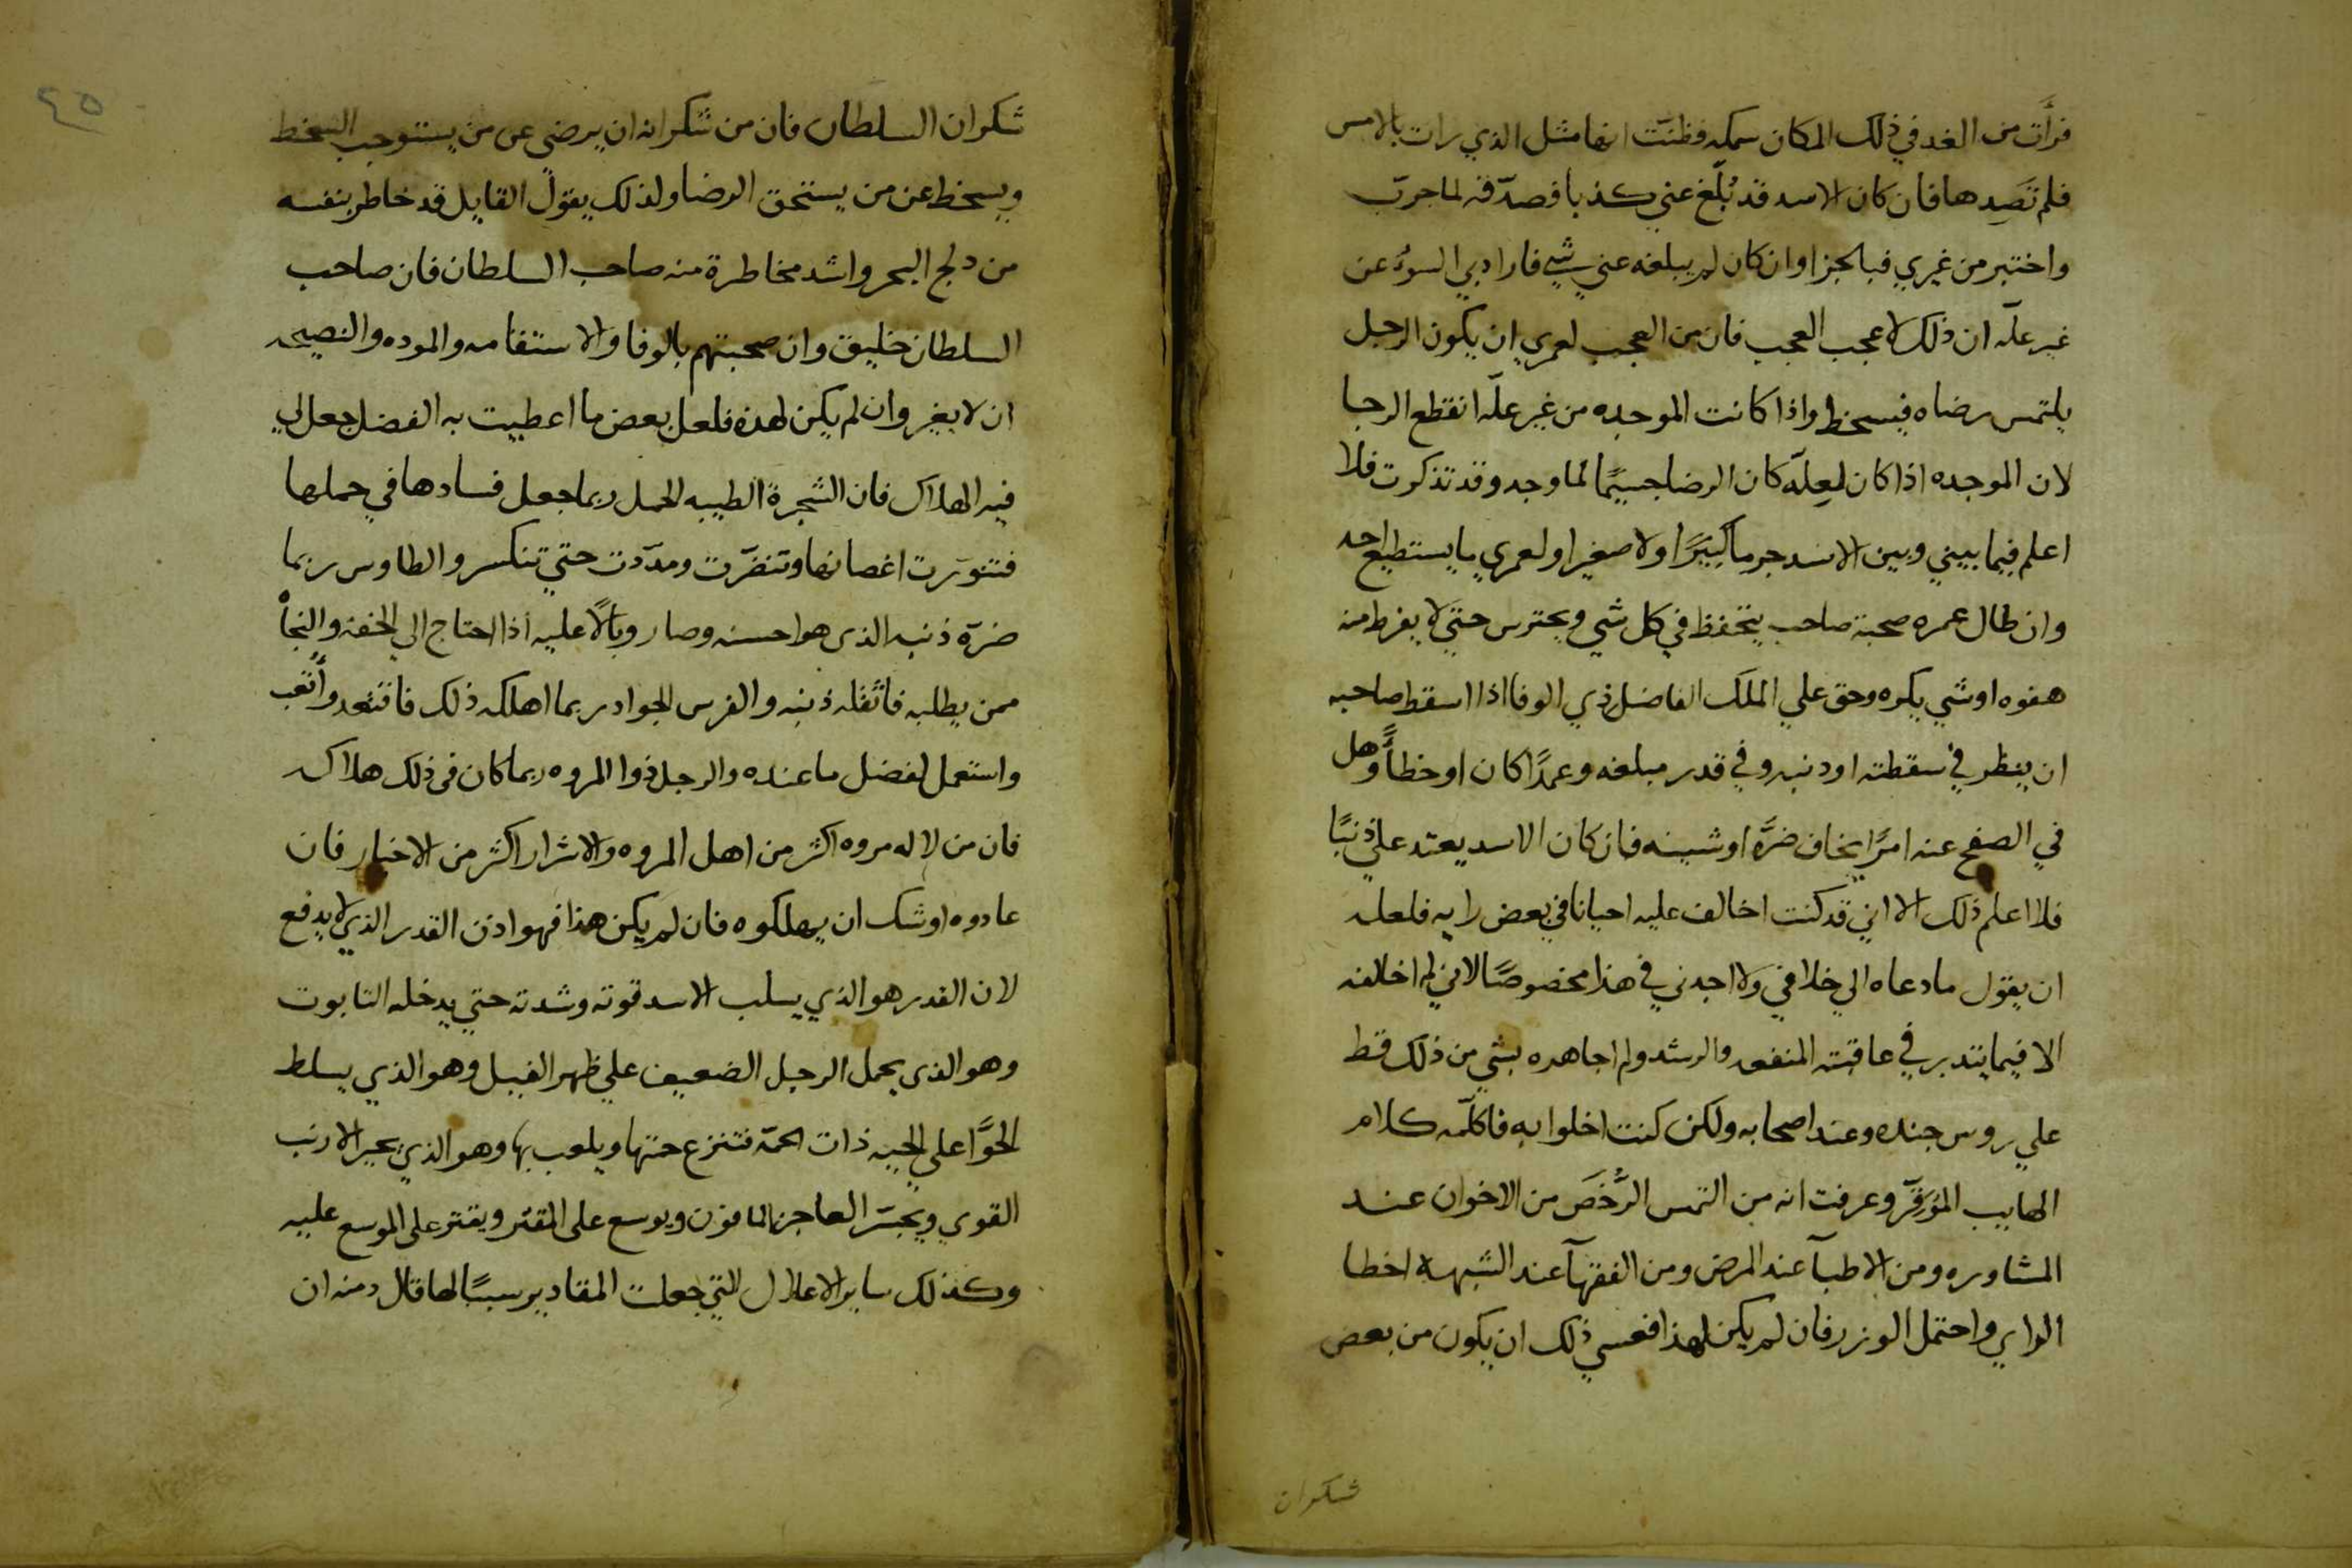 فرأت من الغد في ذلك المكان سمكه فظنت انها مثل الذي رات بالامس
فلم تصدها فان كان الاسد قد بُلّغ عني كذبا فصدّقه لما جربّ
واختبر من غيري فبالحزا وان كان لم يبلغه عني شي فارادبي السوُ عن
غير علّه ان ذلك لاعجب العجب فان من العجب لعمري ان يكون الرجل
يلتمس رضاه فيسخط واذا كانت الموجده من غير علّه انقطع الرجا
لان الموجده اذا كان لعلّه كان الرضا جسيمًا لما وجد وقد تذكرت فلا
اعلم فيما بيني وبين الاسد جرما كبيرًا ولا صغيرا ولعمري ما يستطيع احد
وان طال عمره صحبة صاحب يتحفظ في كل شي ويحترس حتي لا يفرط منه
هفوه او شي يكره وحق علي الملك الفاضل ذي الوفا اذا اسقط صاحبه
ان ينظر في سقطته او دنبه وفي قدر مبلغه وعمدًا كان او خطأً وهل
في الصفح عنه امرًا يخاف ضرَّه او شينه فان كان الاسد يعتد علي ذنبًا
فلا اعلم ذلك الا اني قد كنت اخالف عليه احيانا في بعض رايه فلعله
ان يقول ما دعاه الي خلافي ولا اجدني في هذا مخصوصًا لاني لم اخالفه
الا فيما يتدبر في عاقبته المنفعه والرشد ولم اجاهده بشي من ذلك قط
علي روس جنده وعند اصحابه ولكن كنت اخلوا به فاكلّمه كلام
الهايب المُوَقِّر وعرفت انه من التمس الرُّخَصَ من الاخوان عند
المشاوره ومن الاطبآ عند المرض ومن الفقهآ عند الشبهة اخطا
الراي واحتمل الوزر فان لم يكن لهذا فعسي ذلك ان يكون من بعض
شكران
٤٥
شكران السلطان فان من شكرانه ان يرضي عن من يستوجب السخط
ويسخط عن من يستحق الرضا ولذلك يقول القايل قد خاطر بنفسه
من دلج البحر واشد مخاطرة منه صاحب السلطان فان صاحب
السلطان خليق وان صحبتهم بالوفا والاستقامه والموده والنصيحه
ان لا يغير وان لم يكن لهذه فلعل بعض ما اعطيت به الفضل جعل لي
فيه الهلاك فان الشجرة الطيبه الحمل ربما جعل فسادها في حملها
فتنورت اغصانها وتنضرّت ومدّدت حتي تنكسر والطاوس ربما
ضرّه ذنبه الذي هو احسنه وصار وبالًا عليه اذا احتاج الي الخفه والنجأ
ممن يطلبه فاثقله ذنبه والفرس الجواد ربما اهلكه ذلك فاقتعد وأُتعب
واستعمل لفضل ما عنده والرجل ذوا المروه ربما كان في ذلك هلاكه
فان من لا له مروه اكثر من اهل المروه والاشرار اكثر من الاخيار فان
عادوه اوشك ان يهلكوه فان لم يكن هذا فهو اذن القدر الذي لا يدفع
لان القدر هو الذي يسلب الاسد قوته وشدته حتي يدخله التابوت
وهو الذي يحمل الرجل الضعيف علي ظهر الفيل وهو الذي يسلط
الحوّا علي الحيه ذات الحمّة فتنزع حمتها ويلعب بها وهو الذي يحير الارنب
القوي ويجسّر العاجز المافون ويوسع على المقتر ويقتر على الموسع عليه
وكذلك ساير الاعلال التي جعلت المقادير سببًا لها قال دمنه ان